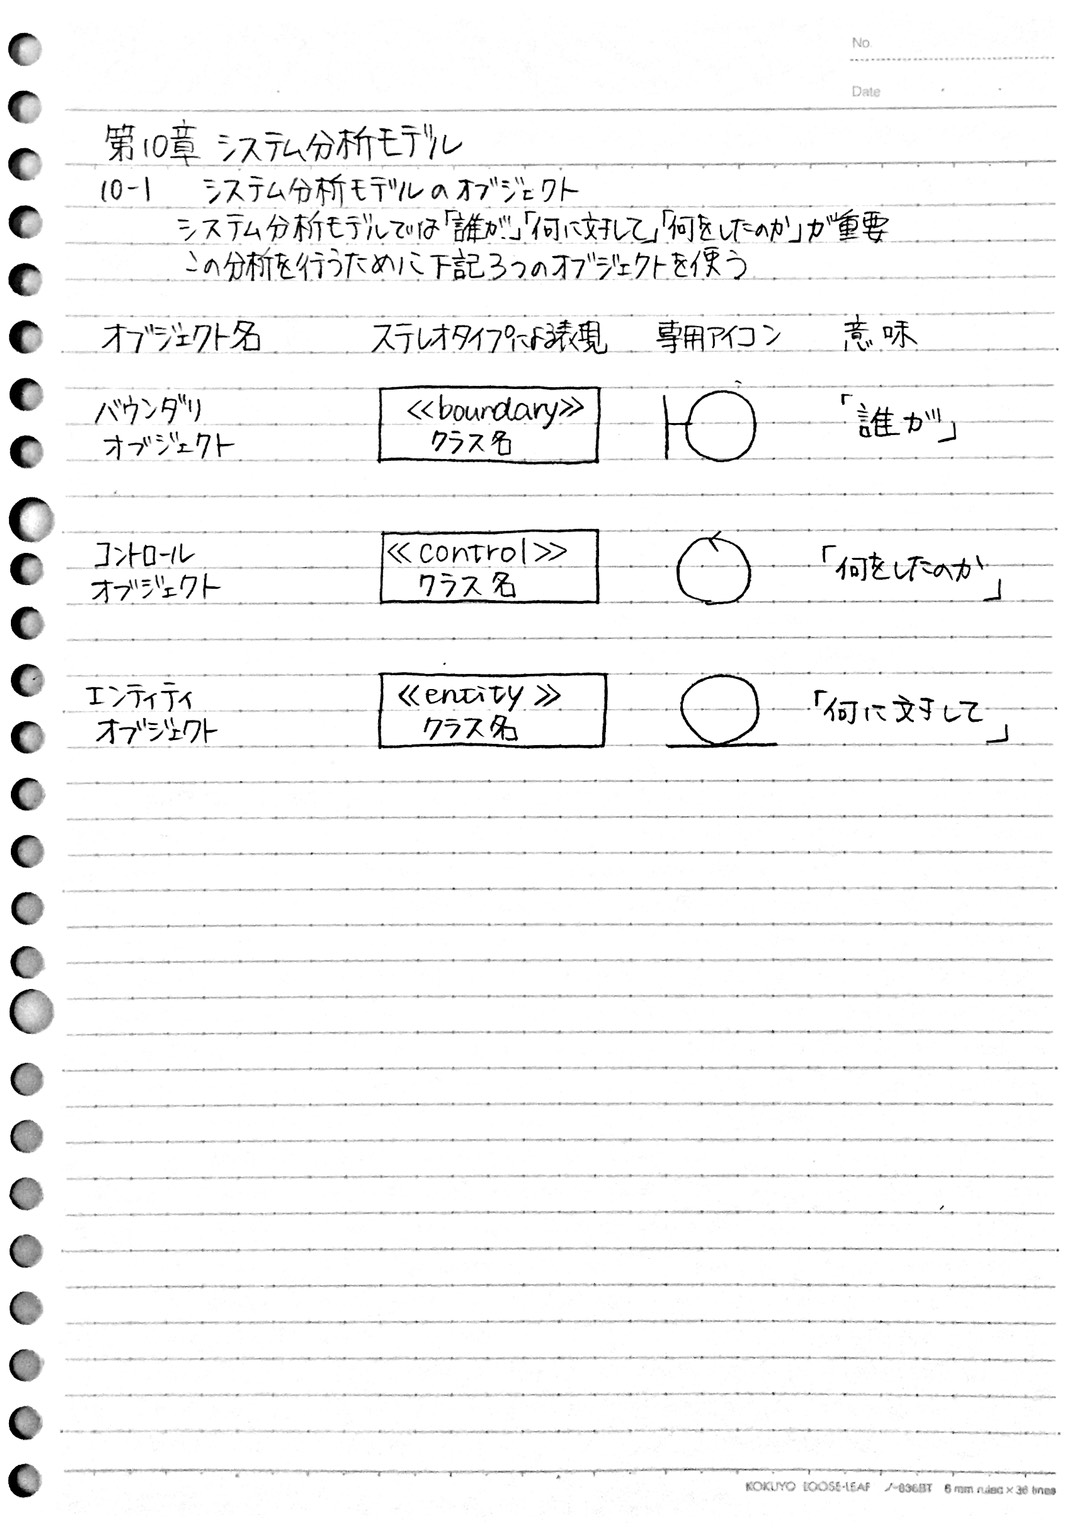 No.
Date
第10章 システム分析モデル
10-1 システム分析モデルのオブジェクト
システム分析モデルでは「誰が」「何に対して」「何をしたのか」が重要
この分析を行うために下記3つのオブジェクトを使う
オブジェクト名 ステレオタイプによる表現 専用アイコン 意味
バウンダリ
オブジェクト
≪boundary≫
クラス名
「誰が」
コントロール
オブジェクト
≪control≫
クラス名
「何をしたのか」
エンティティ
オブジェクト
≪entity≫
クラス名
「何に対して」
KOKUYO LOOSE-LEAF ノ-836BT 6 mm ruled × 36 lines